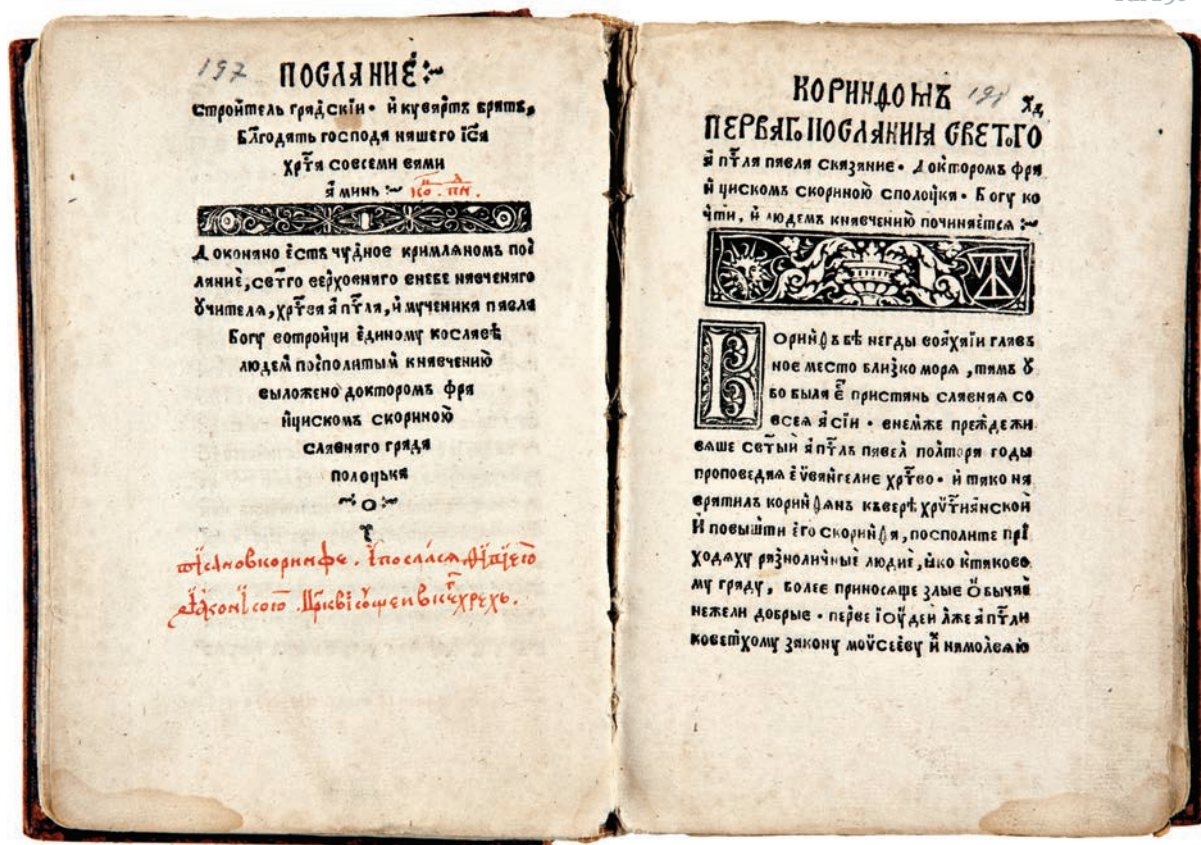 197
ПОСЛАНИЕ́:~
строи́тель грядскїи • и҆ куварть братъ,
Бл҃годать господа нашего і҆с҃а
хрт҃а совсеми вами
а҆минь :~ ко. пн.
Доконано е҆сть чу́дное кримляномъ посъ
лание, свт҃го верховнаго внебе навченаго
Ѹ҆чителя, хрт҃ва а҆пт҃ла, и҆ мученика павла
Богу вотройци е҆диному кославѣ
людем посполитым кнавчению
выложено докторомъ фра
нцискомъ скориною
славнаго града
полоцька
~о~
писанов коринфе.
КОРИНѲОМЪ 198 хд
ПЕРВАГО ПОСЛАНИꙖ СВЕТОГО
а҆пт҃ла павла сказание • Докторомъ фра
нцискомъ скориною сполоцка • Богу ко
чти, и҆ людемъ кнавчению починяется :~
Коринѳъ бѣ негды воахаїи глав
ное место близко моря, тамъ ѹ҆
бо была е҆ пристань славная со
всея а҆сїи • внемже преждежи
ваше светый а҆пт҃лъ павел полтора годы
проповедая е҆ѵангелие хрт҃во • и҆ тако на
вратилъ коринѳянъ квере хрт҃иянской
И҆ повышти е҆го скоринѳа, посполите при
ходяху разноличные людие, яко ктаково
му граду, более приносяще злые ѡ҆бычаи
нежели добрые • перве і҆оудеи лже а҆пт҃ли
коветхому закону моѵсееву и҆ намолвяю